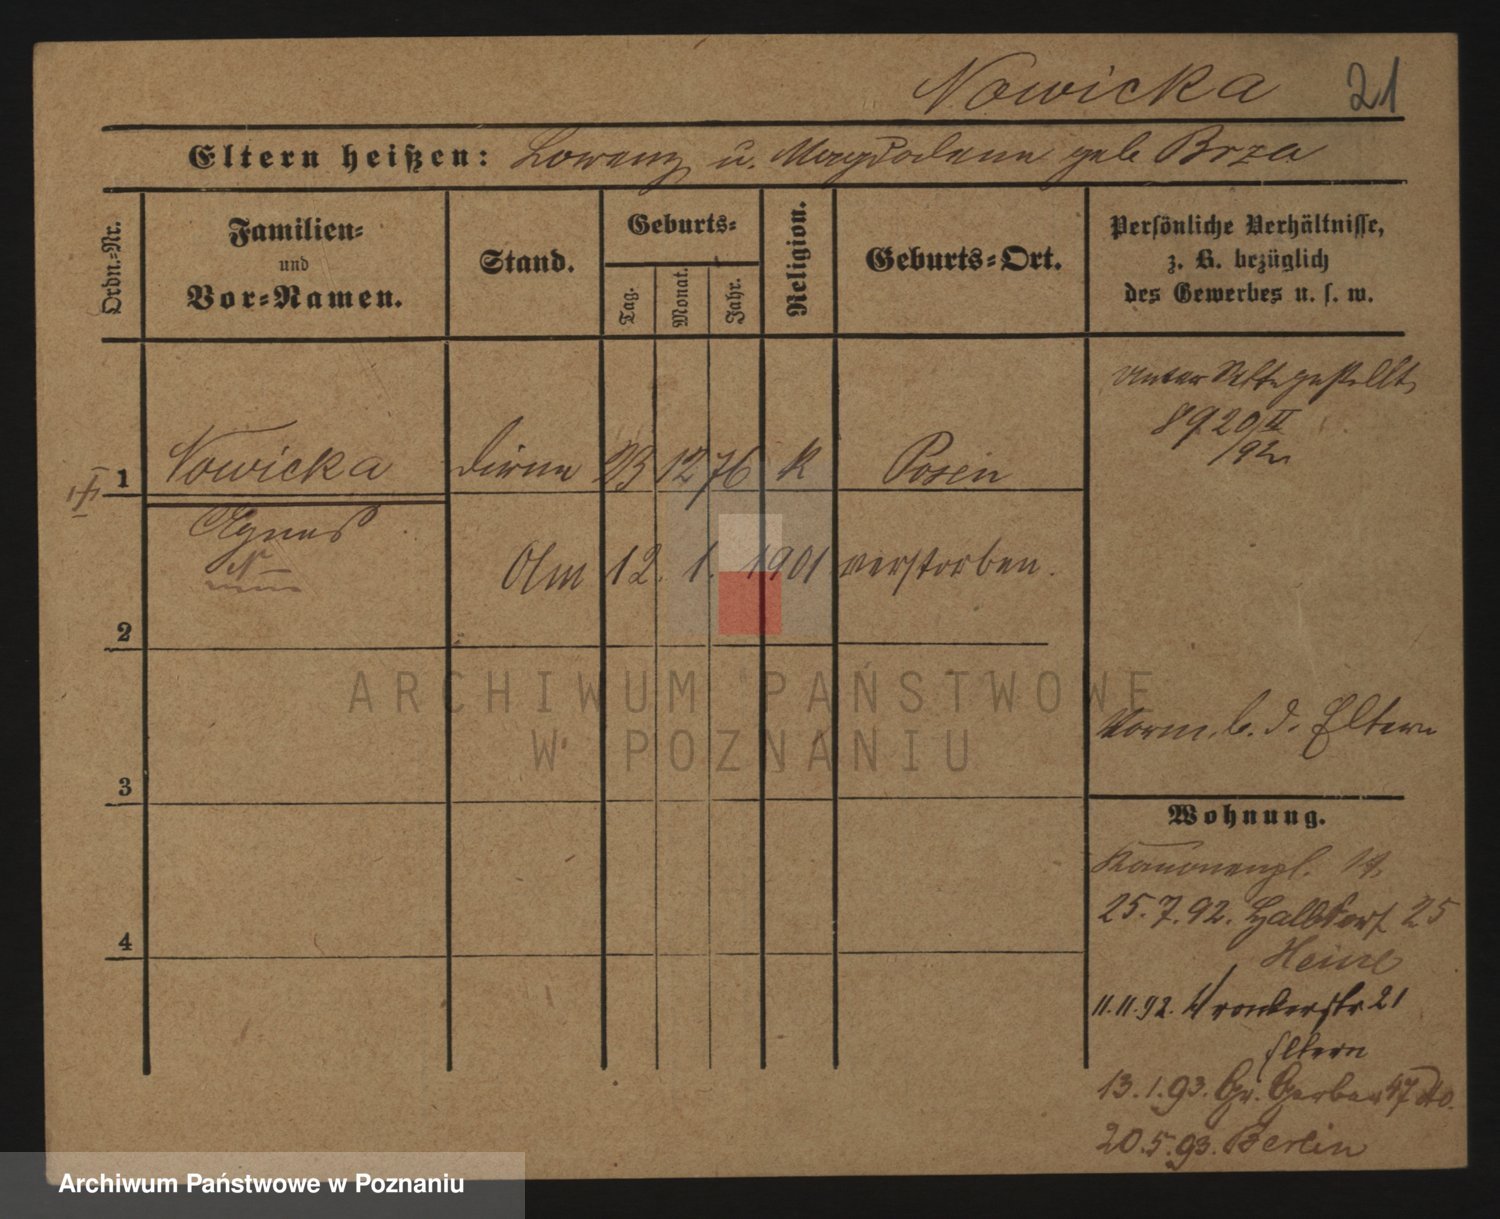 Nowicka 21
Eltern heißen: Lorenz u. Magdalena geb Brza
Ordn.=Nr.
Familien=
und
Vor=Namen.
Stand.
Geburts=
Tag.
Monat.
Jahr.
Religion.
Geburts=Ort.
Persönliche Verhältnisse,
z. B. bezüglich
des Gewerbes u. s. w.
unter gestellt
8920 II
/92
1 Nowicka Dirne 23 12 76 k Posen
Agnes
Am 12. 1. 1901 verstorben.
2
3
4
Vorm. b. d. Eltern
Wohnung.
Kanonenpl.
25.7.92. Halbdorf 25
11.11.92. Wronkerstr 21
Eltern
13.1.93. Gr. Gerber 47 do.
20.5.93. Berlin
ARCHIWUM PAŃSTWOWE
W POZNANIU
Archiwum Państwowe w Poznaniu